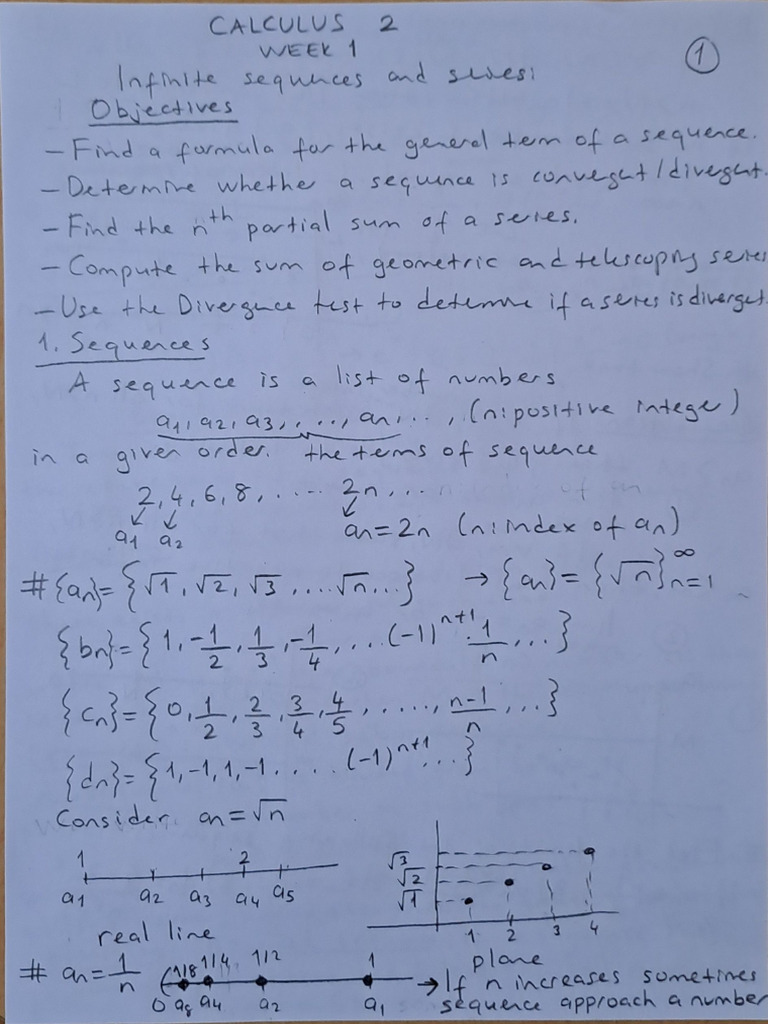 CALCULUS 2
WEEK 1
①
Infinite sequences and series:
Objectives
- Find a formula for the general term of a sequence.
- Determine whether a sequence is convergent/divergent.
- Find the nth partial sum of a series.
- Compute the sum of geometric and telescoping series
- Use the Divergence test to determine if a series is divergent.
1. Sequences
A sequence is a list of numbers
a1, a2, a3, ..., an, ..., (n: positive integer)
in a given order. the terms of sequence
2, 4, 6, 8, .... 2n, ...
a1 a2 an = 2n (n: index of an)
# {an} = {√1, √2, √3, ....√n...} → {an} = {√n}∞n=1
{bn} = {1, -1/2, 1/3, -1/4, ... (-1)^n+1 . 1/n, ...}
{cn} = {0, 1/2, 2/3, 3/4, 4/5, ....., n-1/n, ...}
{dn} = {1, -1, 1, -1 .... (-1)^n+1 ...}
Consider an = √n
1 2
a1 a2 a3 a4 a5
real line
√3
√2
√1
1 2 3 4
plane
# an = 1/n
1/8 1/4 1/2 1
0 a8 a4 a2 a1
→ If n increases sometimes
sequence approach a number